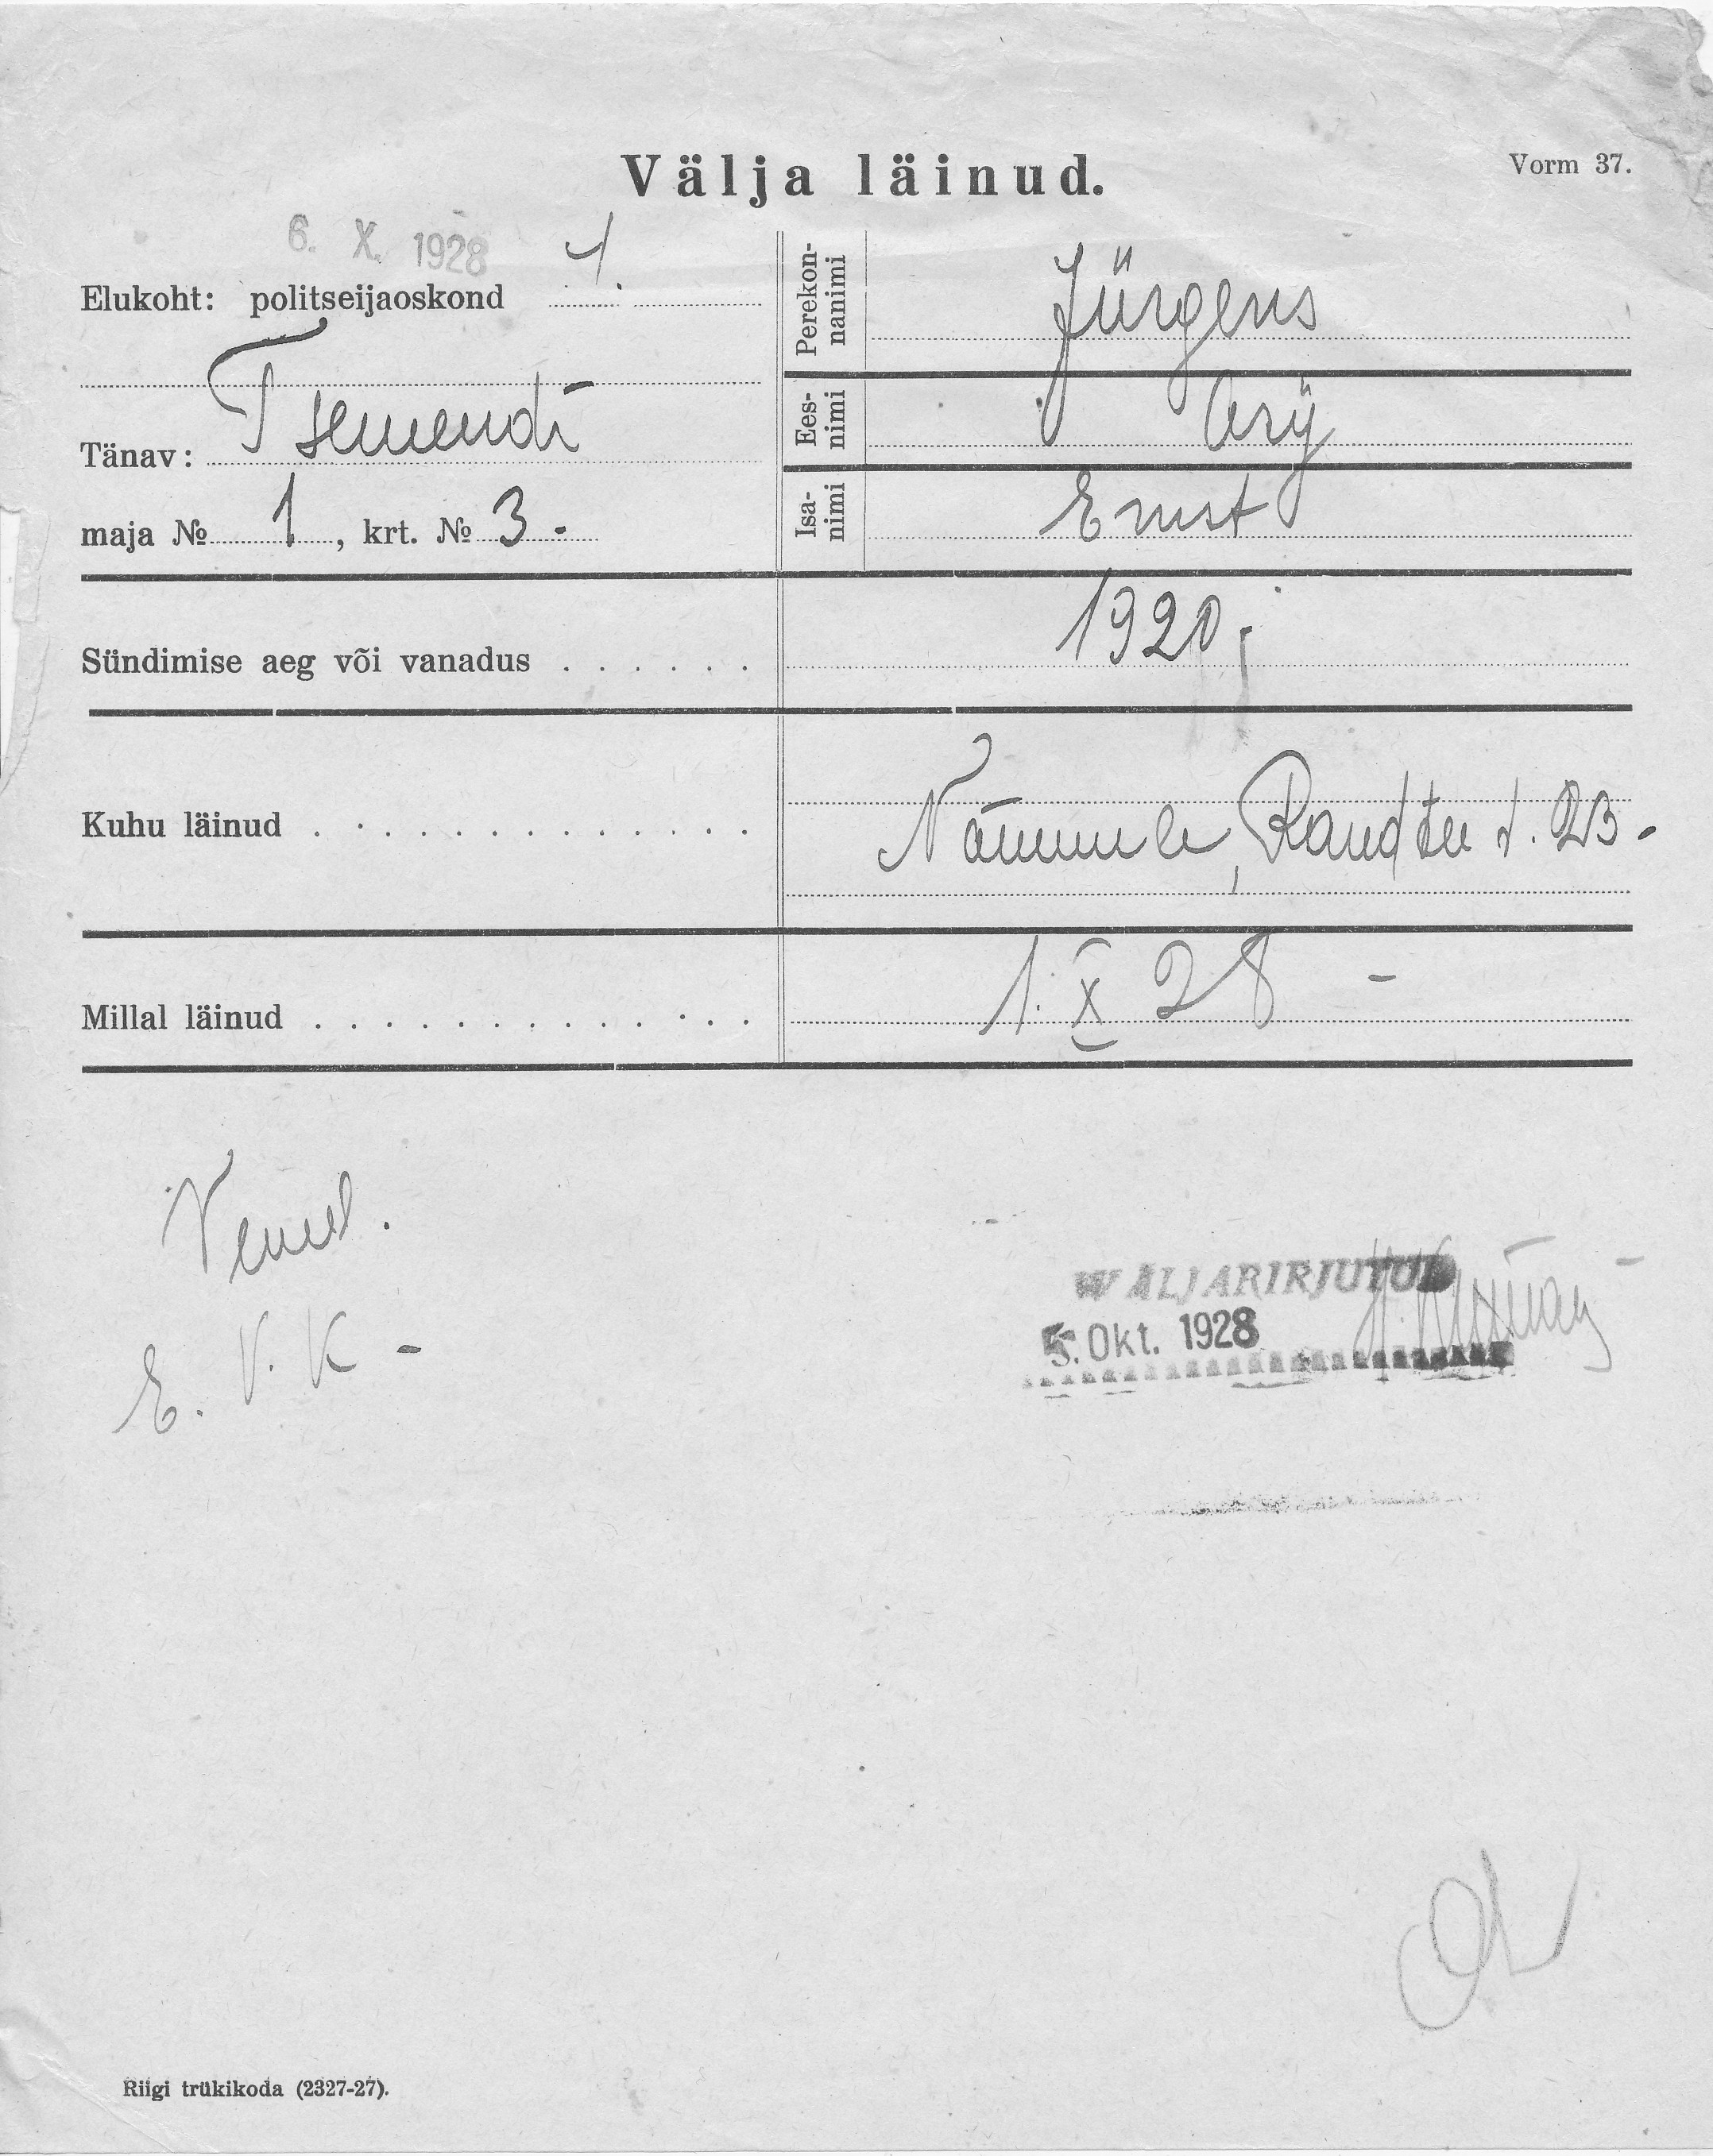 Välja läinud.
Vorm 37.
6. X. 1928
Elukoht: politseijaoskond 4.
Tänav: Tsemendi
maja № 1, krt. № 3.
Perekon-
nanimi
Jürgens
Ees-
nimi
Arÿ
Isa-
nimi
Ernst
Sündimise aeg või vanadus . . . . . .
1920 j
Kuhu läinud . . . . . . . . . . . . .
Nõmmele, Raudtee t. 23.
Millal läinud . . . . . . . . . . . . .
1. X 28 -
Vennel.
E. V. K -
WÄLJAKIRJUTUD
5. Okt. 1928
Riigi trükikoda (2327-27).